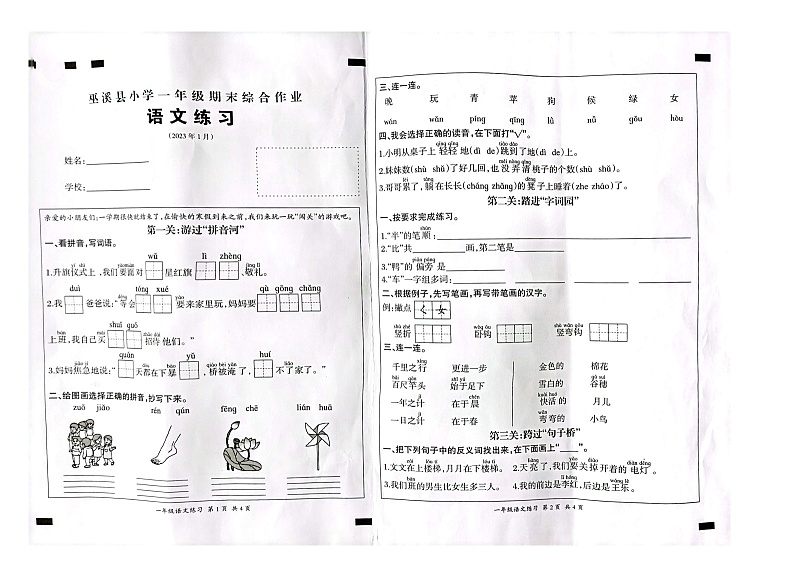 巫溪县小学一年级期末综合作业
语文练习
(2023年1月)
姓名:
学校:
亲爱的小朋友们:一学期很快就结束了,在愉快的寒假到来之前,我们来玩一玩“闯关”的游戏吧。
第一关:游过“拼音河”
一、看拼音,写词语。
wǔ lì zhèng
1.升旗仪式上,我们要面对 星红旗 、敬礼。
duì tóng xué qù gōng chǎng
2.我 爸爸说:“等会 要来家里玩,妈妈要
shuǐ guǒ
上班,我自己买 招待他们。”
quán yǔ huí
3.妈妈焦急地说:“ 天都在下暴 ,桥被淹了, 不了家了。”
二、给图画选择正确的拼音,抄写下来。
zuǒ jiǎo rén qún fēng chē lián huá
一年级语文练习 第1页 共4页
三、连一连。
晚 玩 青 苹 狗 候 绿 女
wán wǎn píng qīng lǜ nǚ gǒu hòu
四、我会选择正确的读音,在下面打“√”。
1.小明从桌子上轻轻地(dì de)跳到了地(dì de)上。
2.妹妹数(shù shǔ)了好几回,也没弄清桃子的个数(shù shǔ)。
3.哥哥累了,躺在长长(cháng zhǎng)的凳子上睡着(zhe zháo)了。
第二关:踏进“字词园”
一、按要求完成练习。
1.“半”的笔顺:
2.“比”共 画,第二笔是
3.“鸭”的偏旁是
4.“车”一字组多词:
二、根据例子,先写笔画,再写带笔画的汉字。
例:撇点 ㄑ 女
竖折 卧钩 竖弯钩
三、连一连。
千里之行 更进一步 金色的 棉花
百尺竿头 始于足下 雪白的 谷穗
一年之计 在于晨 快活的 月儿
一日之计 在于春 弯弯的 小鸟
第三关:跨过“句子桥”
一、把下列句子中的反义词找出来,在下面画上“ ”。
1.文文在上楼梯,月月在下楼梯。 2.天亮了,我们要关掉开着的电灯。
3.我们班的男生比女生多三人。 4.我的前边是李红,后边是王乐。
一年级语文练习 第2页 共4页